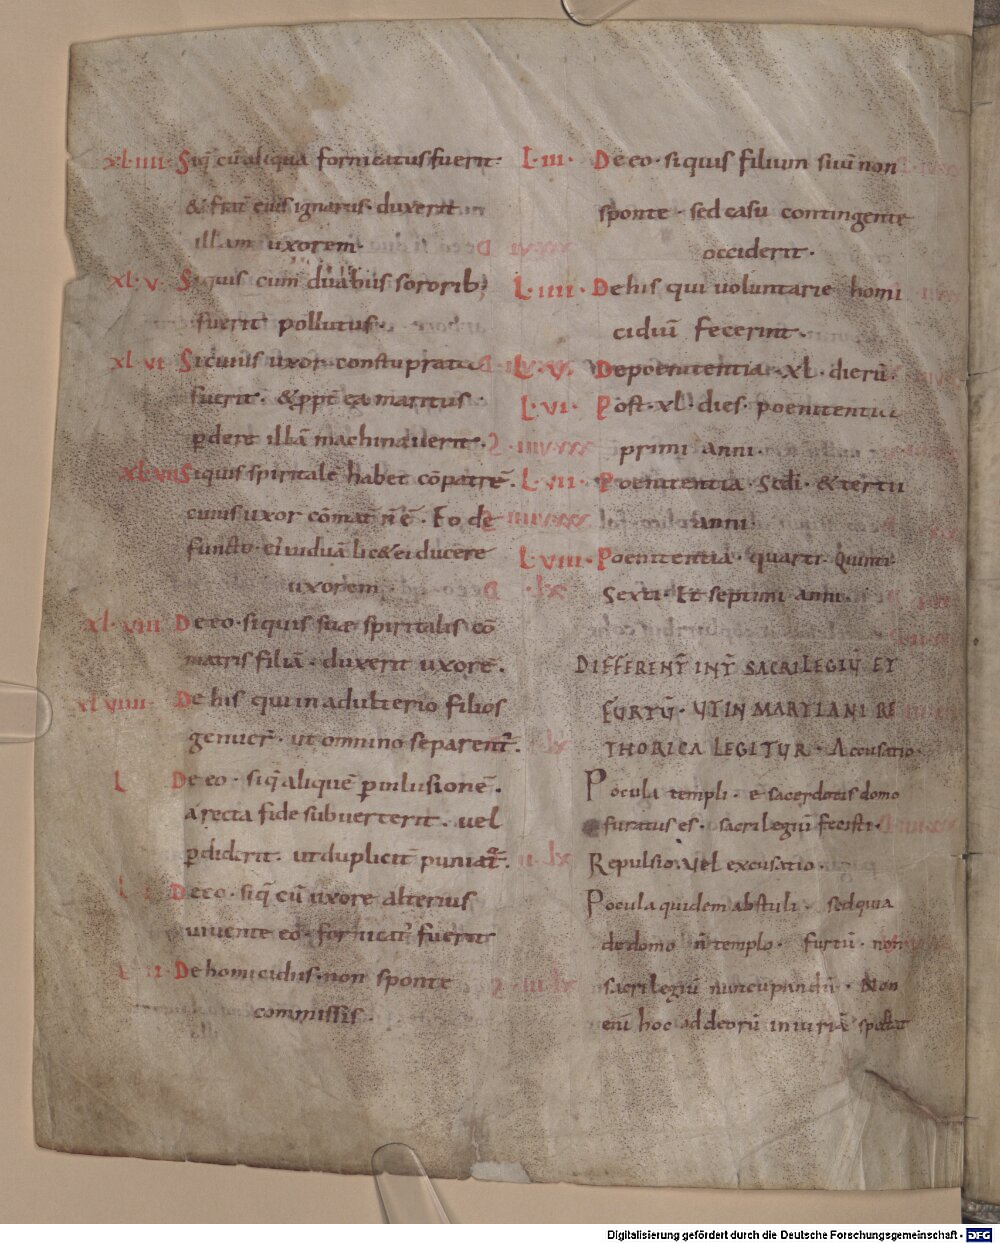 xl·iiii· Siq̄ cū aliqua fornicatus fuerit·
& frat̄ eius ignarus· duxerit
illam uxorem·
xl·v· Siquis cum duabus sororib;
fuerit pollutus·
xl vi Sicuius uxor constuprata
fuerit· & ꝓpt̄ ea maritus·
ꝑdere illā machinauerit·
xl vii Siquis spiritale habet cōpatrē·
cuius uxor cōmat̄ n̄ ē· Eo de
functo· ei uiduā lic& ei ducere
uxorem·
xl·viii De eo· siquis suae spiritalis cō
matris filiā· duxerit uxorē·
xl viiii· De his qui in adulterio filios
genuer̄· ut omnino separent̄·
L De eo· siq̄ aliquē ꝑ inlusionē·
a recta fide subuerterit· uel
ꝑdiderit· ut duplicit̄ puniat̄·
L i De eo· siq̄ cū uxore alterius
uiuente eo· fornicat̄ fuerit
L ii De homicidiis· non sponte
commissis·
L·iii· De eo· siquis filium suū non
sponte· sed casu contingente
occiderit·
L·iiii· De his qui uoluntarie homi
cidiū fecerint·
L·v· De poenitentia· xl· dierū·
L·vi· Post· xl· dies· poenitentia
primi anni·
L·vii· Poenitentia· Scdi· & tertii
anni·
L·viii· Poenitentia· quarti· Quinti·
Sexti· Et septimi anni·
DIFFERENT̄ INT̄ SACRILEGIŪ ET
FURTŪ· UT IN MARTIANI RE
THORICA LEGITUR· Accusatio·
Pocula templi· e sacerdotis domo
furatus es· sacrilegiū fecisti·
Repulsio uel excusatio·
Pocula quidem abstuli· sed quia
de domo n̄ templo· furtū· non
sacrilegiū nuncupandū· Non
enī hoc ad deorū iniuriā spectat
Digitalisierung gefördert durch die Deutsche Forschungsgemeinschaft - DFG